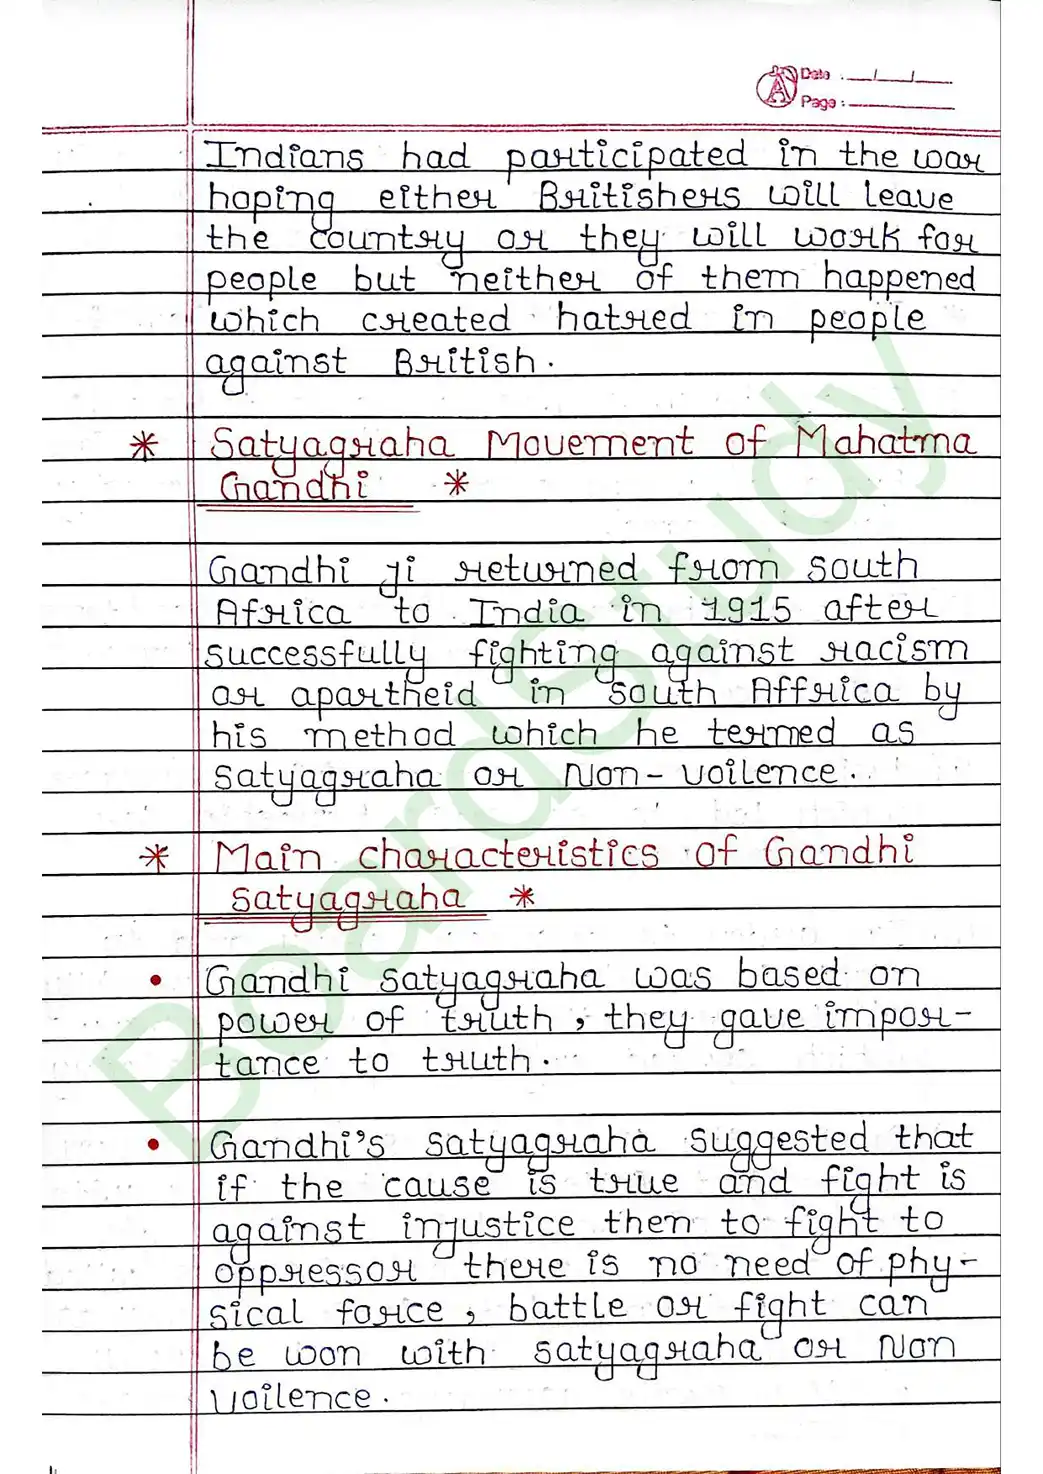 Date : __/__/__
Page :
Indians had participated in the war
hoping either Britishers will leave
the country or they will work for
people but neither of them happened
which created hatred in people
against British.
* Satyagraha Movement of Mahatma
Gandhi *
Gandhi ji returned from south
Africa to India in 1915 after
successfully fighting against racism
or apartheid in south Affrica by
his method which he termed as
satyagraha or Non-voilence.
* Main characteristics of Gandhi
satyagraha *
• Gandhi satyagraha was based on
power of truth, they gave impor-
tance to truth.
• Gandhi's satyagraha suggested that
if the cause is true and fight is
against injustice then to fight to
oppressor there is no need of phy-
sical force, battle or fight can
be won with satyagraha or Non
voilence.
BoardStudy